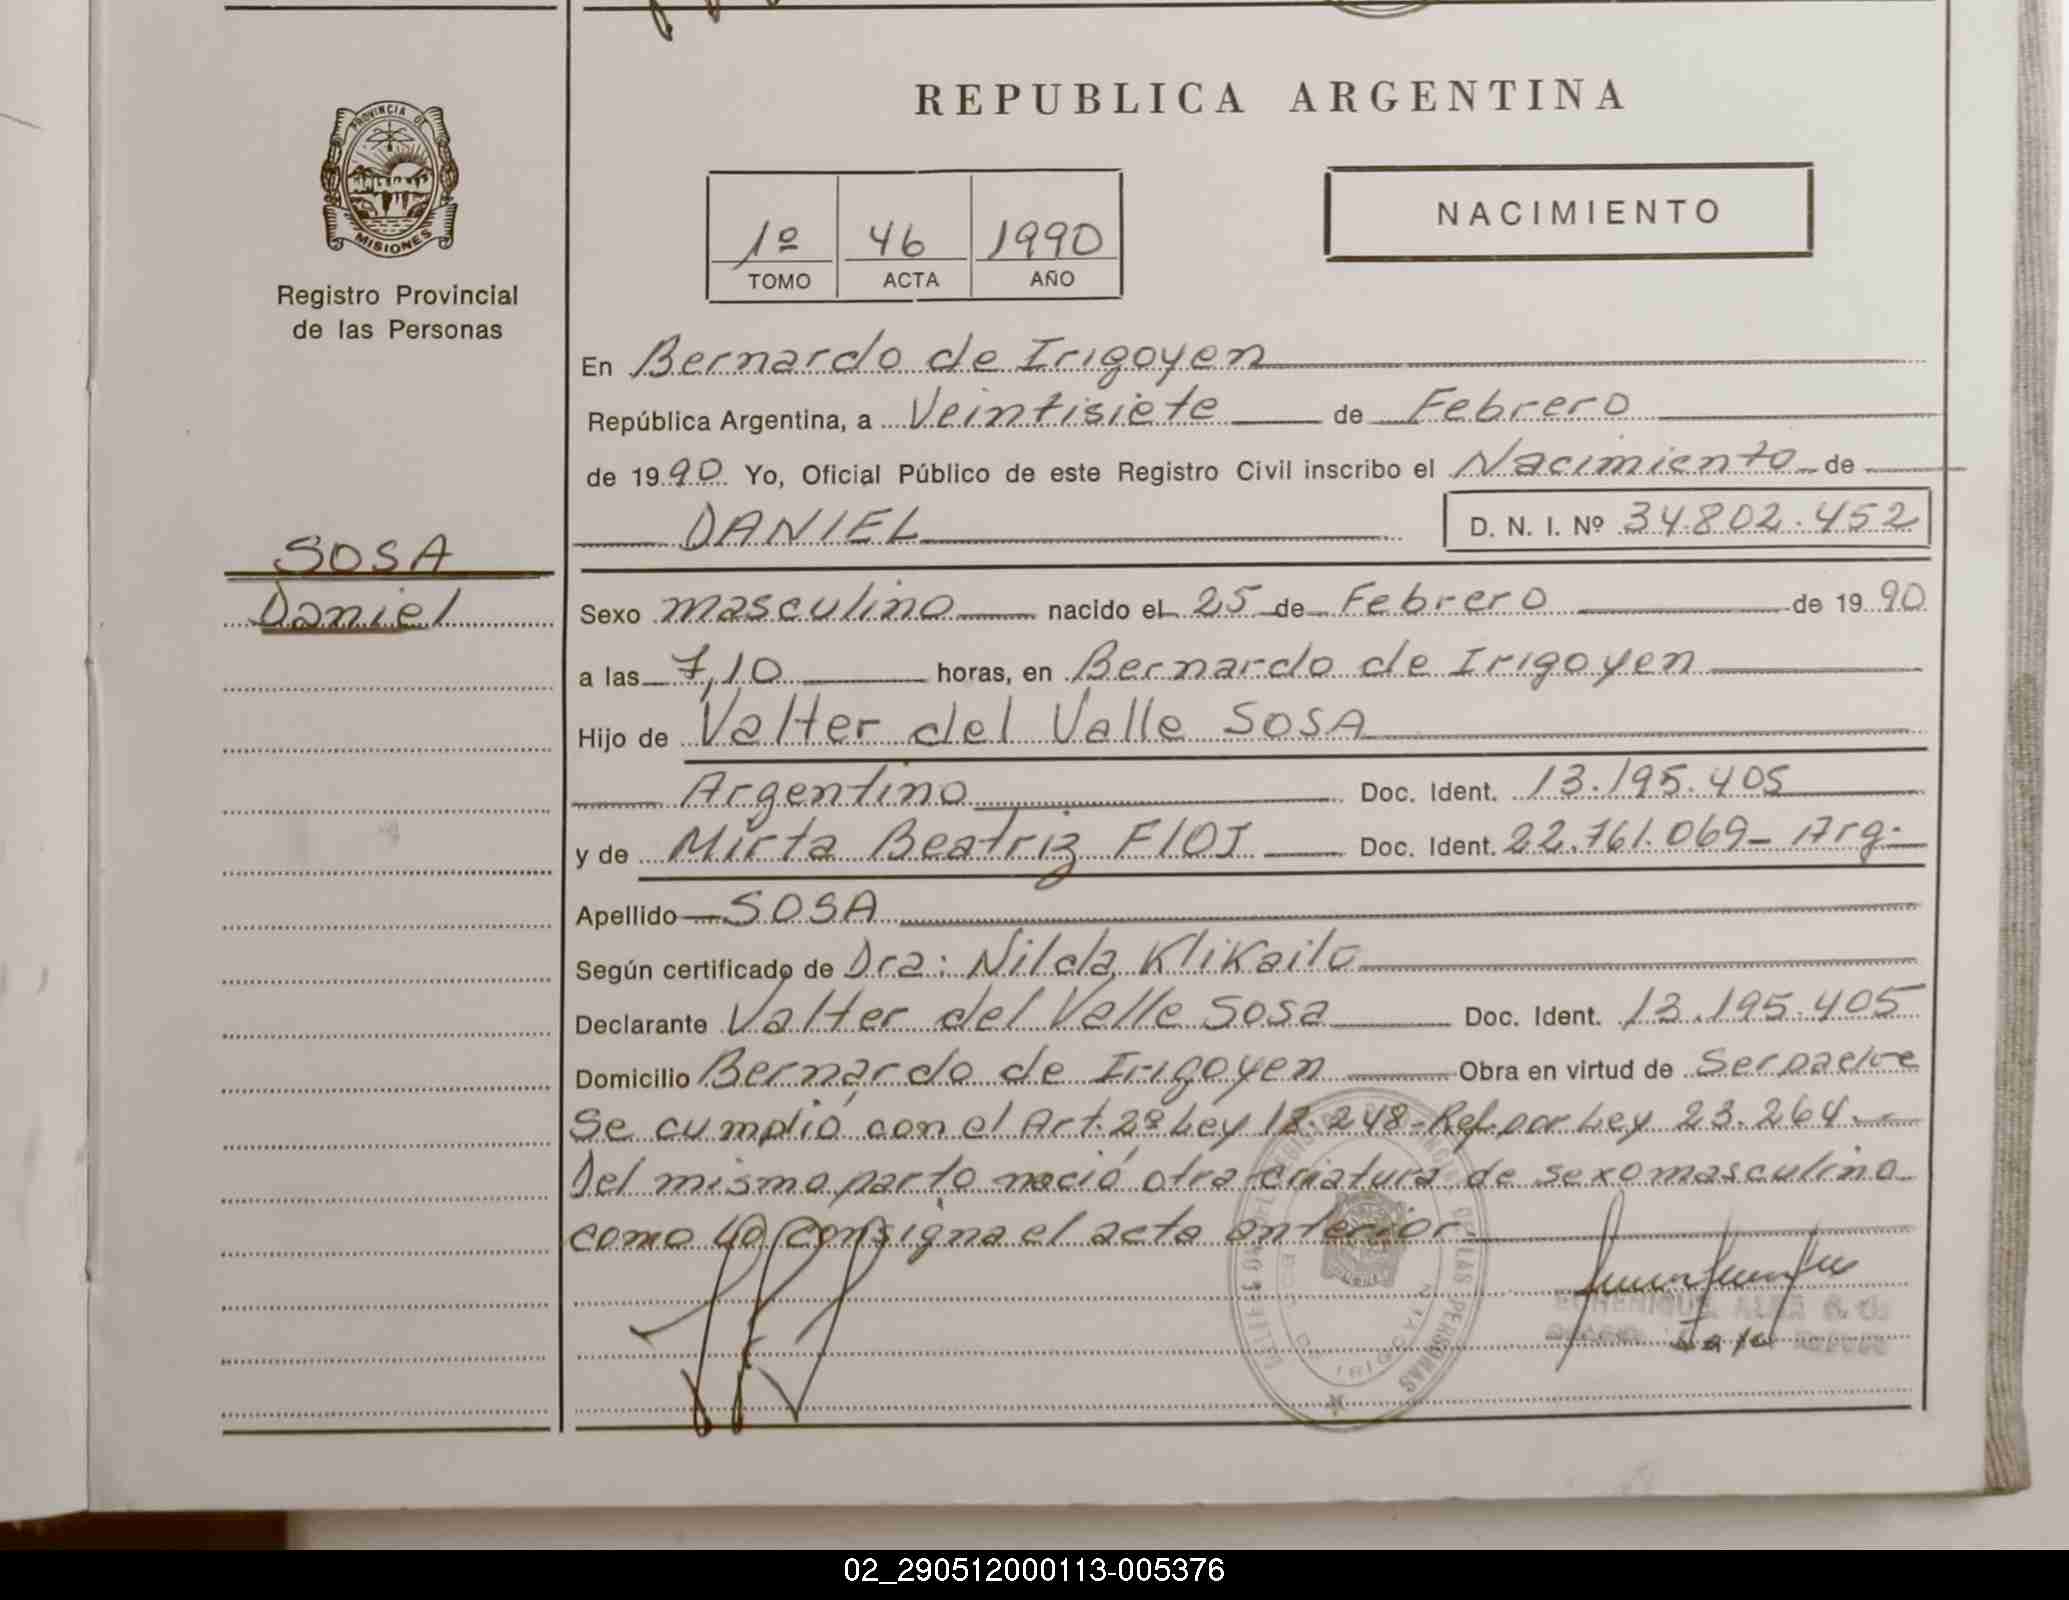 REPUBLICA ARGENTINA
PROVINCIA DE
MISIONES
Registro Provincial
de las Personas
1º 46 1990
TOMO ACTA AÑO
NACIMIENTO
En Bernardo de Irigoyen
República Argentina, a Veintisiete de Febrero
de 1990 Yo, Oficial Público de este Registro Civil inscribo el Nacimiento de
DANIEL D. N. I. Nº 34.802.452
SOSA
Daniel
Sexo masculino nacido el 25 de Febrero de 1990
a las 7,10 horas, en Bernardo de Irigoyen
Hijo de Valter del Valle SOSA
Argentino Doc. Ident. 13.195.405
y de Mirta Beatriz FIOI Doc. Ident. 22.761.069- Arg.
Apellido SOSA
Según certificado de Dra: Nilda Klikailo
Declarante Valter del Valle Sosa Doc. Ident. 13.195.405
Domicilio Bernardo de Irigoyen Obra en virtud de Ser padre
Se cumplió con el Art. 2º Ley 18.248-Ref. por Ley 23.264
Del mismo parto nació otra criatura de sexo masculino
como lo consigna el acta anterior
DE LAS PERSONAS
02_290512000113-005376